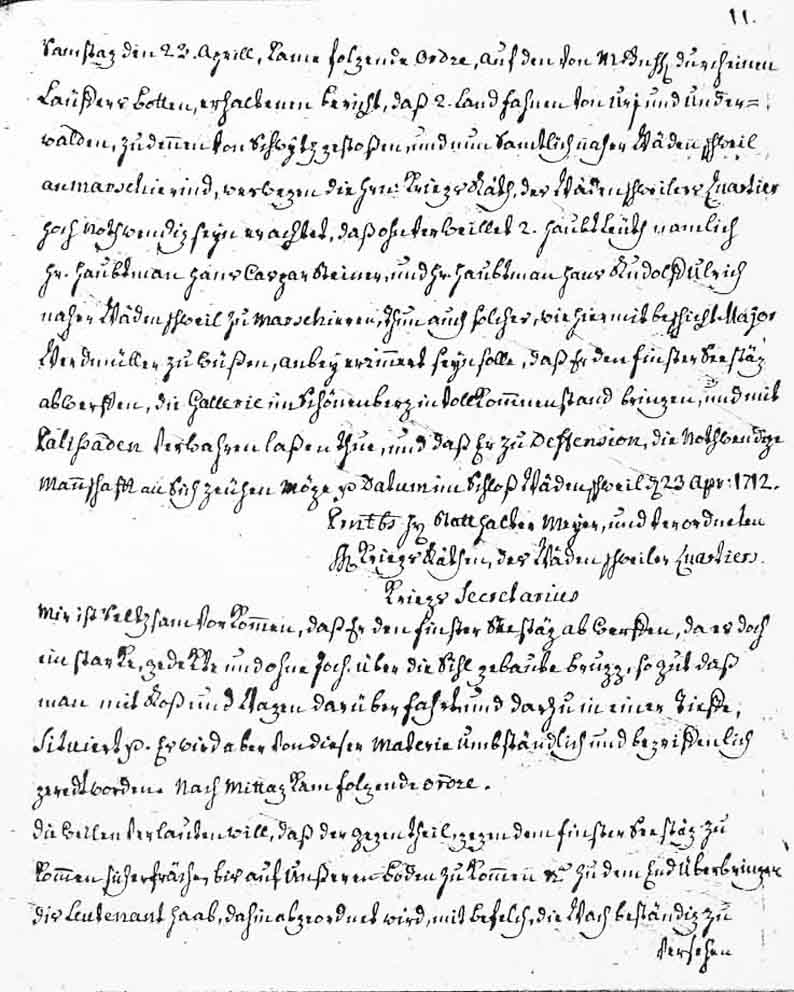 11.
Samstag den 23. Aprill, kame folgende Ordre, auf den von durch einen
Läüffers Botten, erhaltenen bericht, daß 2. Landfahnen von Urj und Under=
walden, zu denen von Schwytz gestoßen, und nun samtlich naher Wädenschweil
anmarschierind, weswegen die Hrn: Kriegs Räth, des Wädenschweilers Quartier
hoch Nothwendig seyn erachtet, daß ohnverweillet 2. Haubtleüth namlich
Hr. Haubtman Hans Caspar Steiner, und Hr. Haubtman Hans Rudolff Ulrich
naher Wädenschweil zu Marschieren, thun auch solches, wie hiermit beschicht Major
Werdmüller zu wüßen, anbey erinnert seyn solle, daß Er den finster See stäg
abwerffen, die Gallerie im Schönenberg in vollkommen stand bringen, und mit
Palißaden verwahren laßen thüe, und daß Er zu Deffension, die Nothwendige
Mannschafft an sich zeühen möge Datum im Schloß Wädenschweil 23 Apr: 1712.
Statthalter Meyer, und verordneten
Kriegs Räthen, des Wädenschweiler Quartiers.
Kriegs Secretarius
Mir ist seltzsam vorkommen, daß Er den finster See stäg abwerffen, da es doch
ein starke, gedekte und ohne Joch über die Sihl gebaute brugg, so gut daß
man mit Roß und Wagen darüber fahrt und darzu in einer Tieffe,
Situiert Es wird aber von dieser Materie umbständlich und begriffenlich
geredt worden. Nach Mittag kam folgende ordre.
Dieweilen verlauten will, daß der gegentheil, gegen dem finster See stäg zu
kommen sich erfräche, bis auf Unßeren Boden zu kommen zu dem End Überbringer
dis Leutenant Haab, dahin abgeordnet wird, mit befelch, die Wach beständig zu
versehen